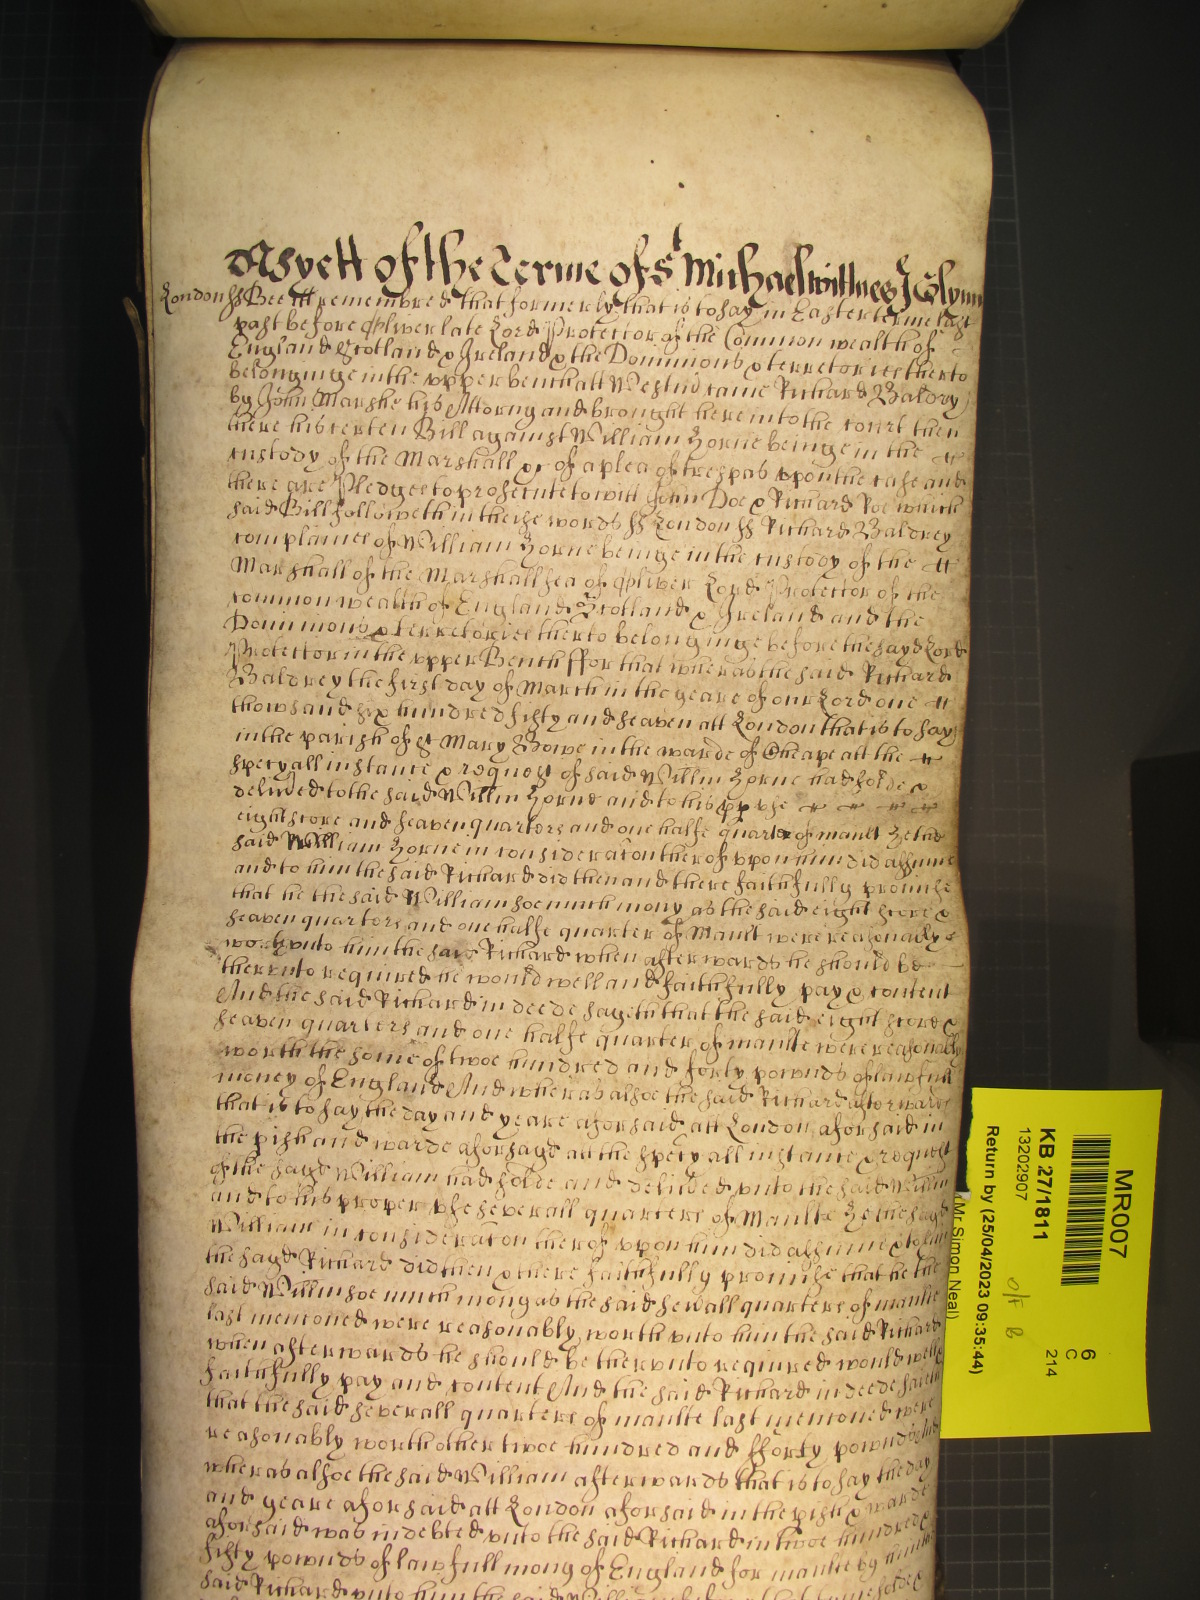 as yett of the Terme of St Michael wittnes J Glynn
London ss Bee itt remembred that formerly that is to say in Easter terme last
past before Oliver late Lord Protector of the Common wealth of
England Scotland & Ireland & the Dominions & terretories therto
belonginge in the upper bench att Westmr came Richard Baldry
by John Marshe his Attorny and brought here into the court then
there his certen Bill against William Horne beinge in the
custody of the Marshall &c of a plea of trespas upon the case and
there are Pledges to prosecute to witt John Doe & Richard Roe which
said Bill followeth in these words ss London ss Richard Baldrey
complaines of William Horne beinge in the custody of the
Marshall of the Marshallsea of Oliver Lord Protector of the
common wealth of England Scotland & Ireland and the
Dominions & terretories therto belonginge before the sayd Lord
Protector in the upper Bench ffor that wheras the said Richard
Baldrey the first day of March in the yeare of our Lord one
thowsand six hundred fifty and seaven att London that is to say
in the parish of St Mary Bowe in the warde of Cheape att the
specyall instance & request of said Willm Horne had solde &
delived to the said Willm Horne and to his pp use
eight score and seaven quarters and one halfe quarter of mault He the
said William Horne in consideracon therof upon him did assume
and to him the said Richard did then and there faithfully promise
that he the said William soe much mony as the said eight score &
seaven quarters and one halfe quarter of Mault were reasonably
worth unto him the said Richard when afterwards he should be
therunto required he would well and faithfully pay & content
And the said Richard in deede sayeth that the said eight score &
seaven quarters and one halfe quarter of maulte were reasonably
worth the some of twoe hundred and forty pownds of lawfull
money of England And wheras alsoe the said Richard afterwards
that is to say the day and yeare aforsaid att London aforsaid in
the pish and warde aforsayd att the specyall instance & request
of the sayd William had solde and delived unto the said Willm
and to his proper use severall quarters of Maulte He the sayd
William in consideracon therof upon him did assume & to him
the sayd Richard did then & there faithfully promise that he the
said Willm soe much mony as the said sevall quarters of maulte
last mentoned were reasonably worth unto him the said Richard
when afterwards he should be therunto required would well &
faithfully pay and content And the said Richard in deede saieth
that the said severall quarters of maulte last mentoned were
reasonably worth other twoe hundred and fforty pownds And
wheras alsoe the said William afterwards that is to say the day
and yeare aforsaid att London aforsaid in the pish & warde
aforsaid was indebted unto the said Richard in twoe hundred &
fifty pownds of lawfull mony of England for maulte by him the
said Richard unto him the said Willm before that tyme solde &
MR007
6
C
214
KB 27/811
13202907
O/F B
Return by (25/04/2023 09:35:44)
Mr Simon Neal)